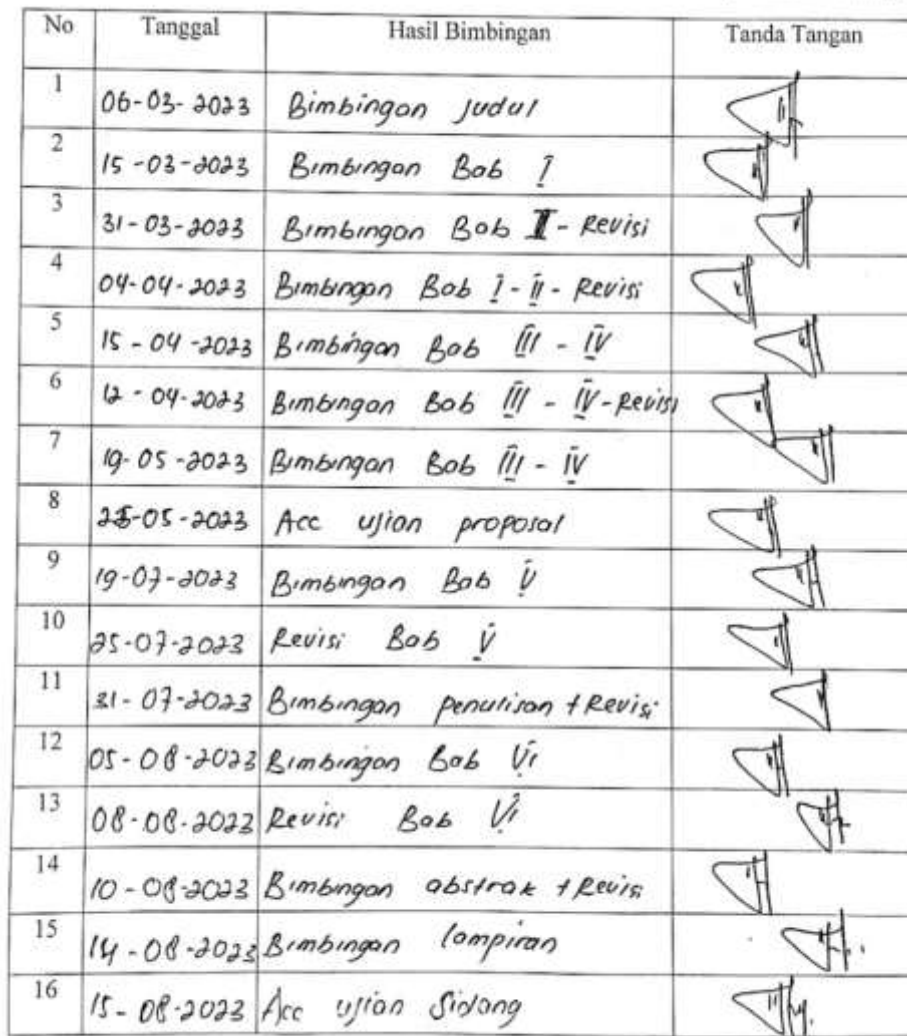 No Tanggal Hasil Bimbingan Tanda Tangan
1 06-03-2023 Bimbingan Judul
2 15-03-2023 Bimbingan Bab I
3 31-03-2023 Bimbingan Bab II - Revisi
4 04-04-2023 Bimbingan Bab I - II - Revisi
5 15-04-2023 Bimbingan Bab III - IV
6 12-04-2023 Bimbingan Bab III - IV - Revisi
7 19-05-2023 Bimbingan Bab III - IV
8 25-05-2023 Acc ujian proposal
9 19-07-2023 Bimbingan Bab V
10 25-07-2023 Revisi Bab V
11 31-07-2023 Bimbingan penulisan + Revisi
12 05-08-2023 Bimbingan Bab VI
13 08-08-2023 Revisi Bab VI
14 10-08-2023 Bimbingan abstrak + Revisi
15 14-08-2023 Bimbingan lampiran
16 15-08-2023 Acc ujian Sidang